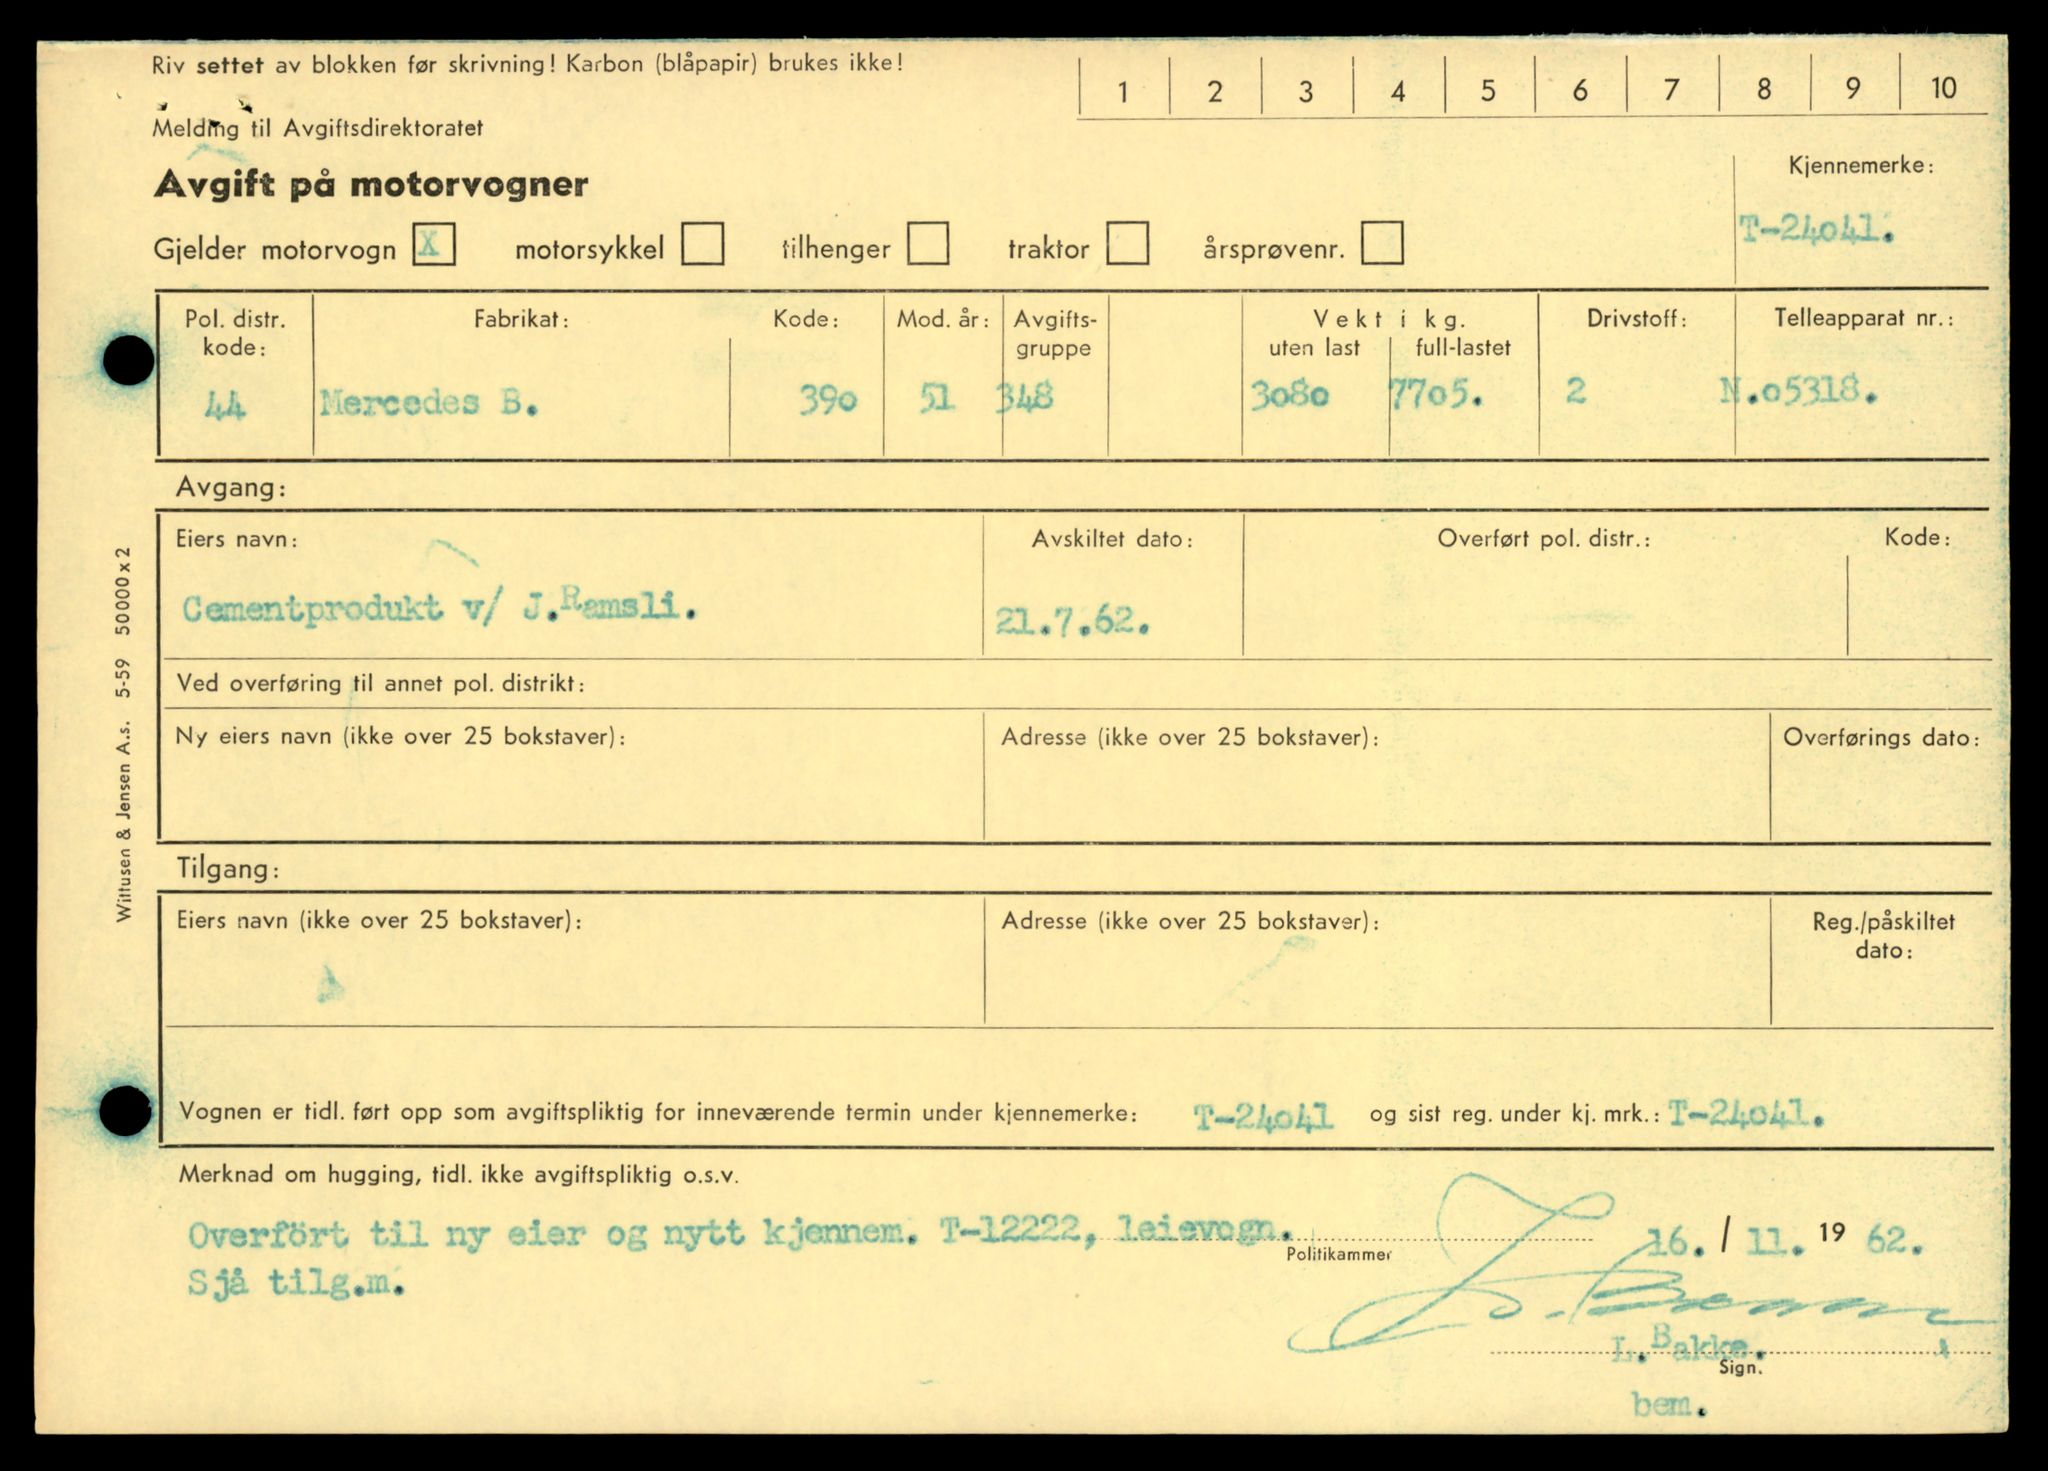 Riv settet av blokken før skrivning! Karbon (blåpapir) brukes ikke!
1 2 3 4 5 6 7 8 9 10
Melding til Avgiftsdirektoratet
Avgift på motorvogner
Kjennemerke:
T-24041.
Gjelder motorvogn X motorsykkel tilhenger traktor årsprøvenr.
Pol. distr. kode:
Fabrikat:
Kode:
Mod. år:
Avgifts-
gruppe
Vekt i kg.
uten last
full-lastet
Drivstoff:
Telleapparat nr.:
44 Mercedes B. 390 51 348 3080 7705. 2 N.05318.
Avgang:
Eiers navn:
Avskiltet dato:
Overført pol. distr.:
Kode:
Cementprodukt v/ J.Ramsli.
21.7.62.
Ved overføring til annet pol. distrikt:
Ny eiers navn (ikke over 25 bokstaver):
Adresse (ikke over 25 bokstaver):
Overførings dato:
Tilgang:
Eiers navn (ikke over 25 bokstaver):
Adresse (ikke over 25 bokstaver):
Reg./påskiltet
dato:
Vognen er tidl. ført opp som avgiftspliktig for inneværende termin under kjennemerke: T-24041 og sist reg. under kj. mrk.: T-24041.
Merknad om hugging, tidl. ikke avgiftspliktig o.s.v.
Overfört til ny eier og nytt kjennem. T-12222, leievogn.
Sjå tilg.m.
Politikammer
16. / 11. 19 62.
L.Bakke.
Sign.
bem.
Wittusen & Jensen A.s. 5-59 50000 x 2